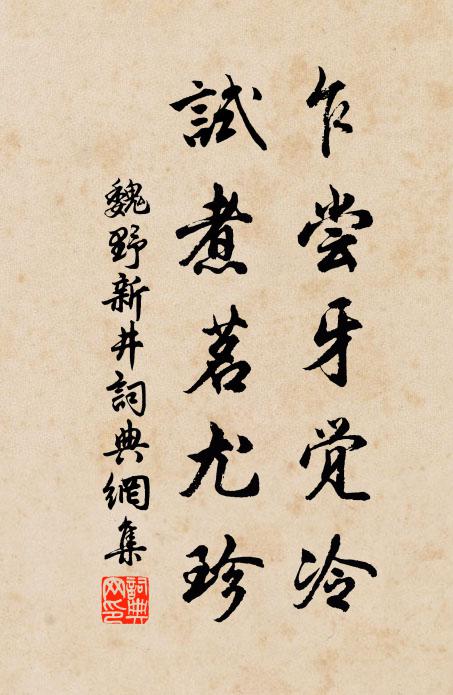 乍尝牙觉冷
試煮茗尤珍
魏野新井詞典網集
詞典
网印